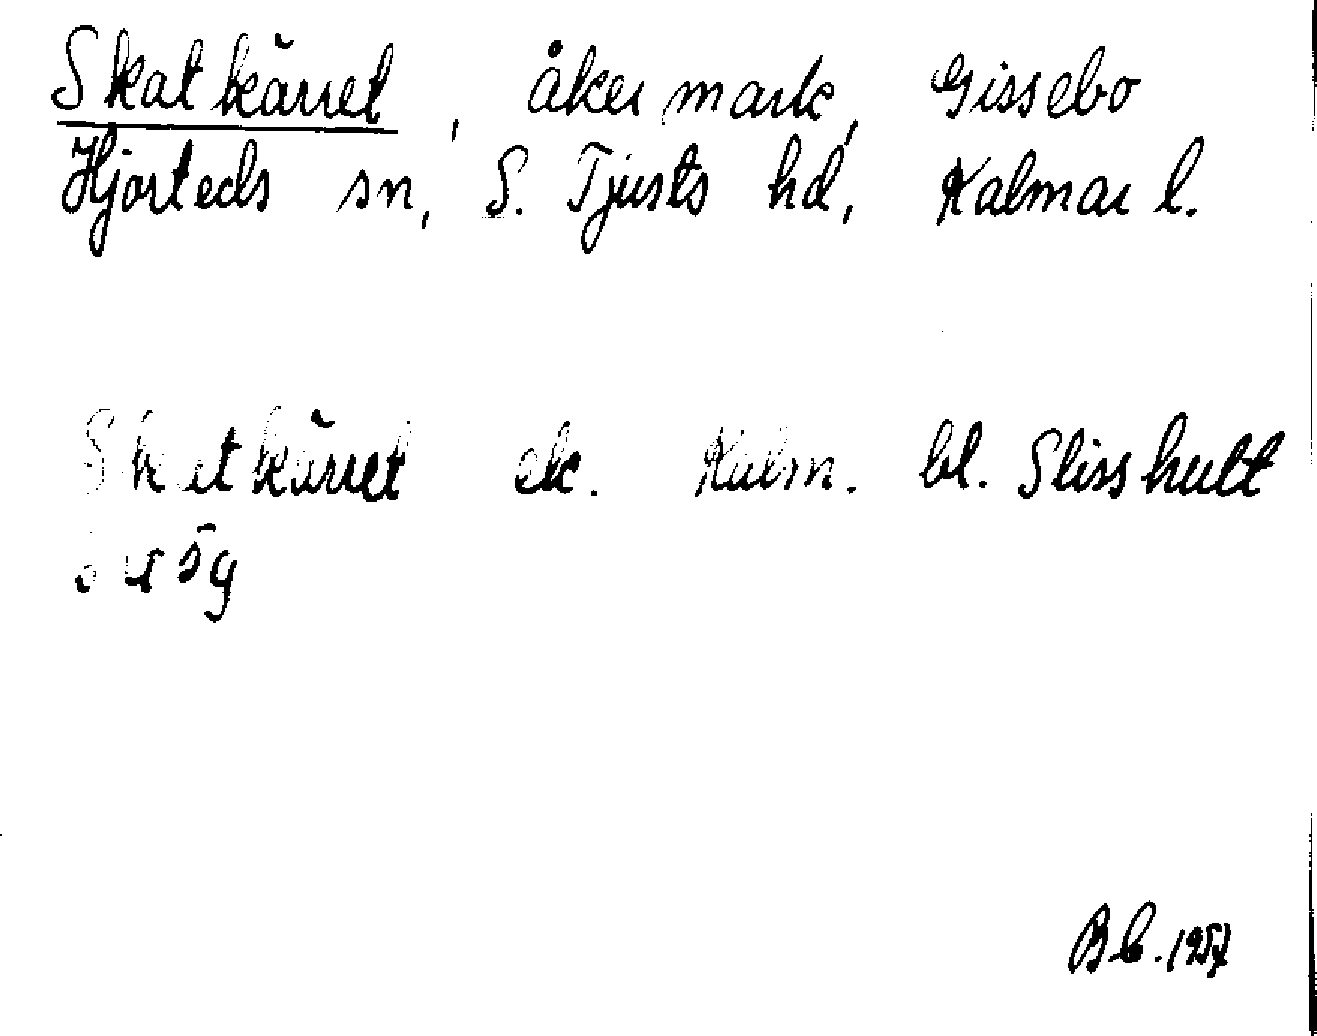 Skatkärret, åkermark, Gissebo
Hjorteds sn, S. Tjusts hd, Kalmar l.
Skatkärret ek. Kalm. bl. Slisshult
Bb. 1957